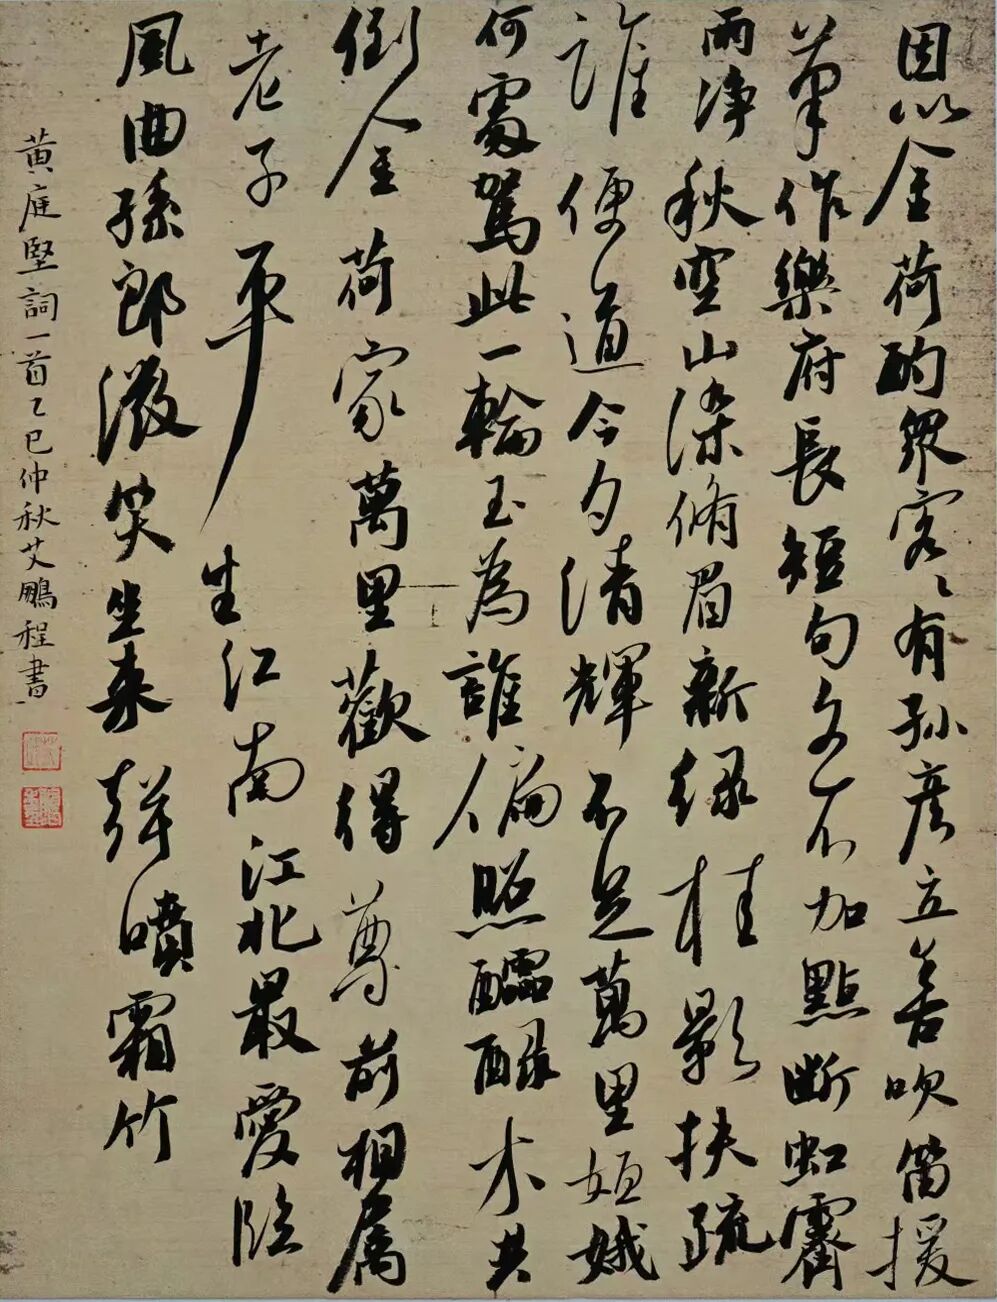 因以金荷酌眾客〻有孙彦立善吹笛援
筆作樂府長短句文不加點斷虹霽
雨淨秋空山染脩眉新緑桂影扶疏
誰便道今夕清輝不足萬里姮娥
何處駕此一輪玉為誰偏照醽醁木共
倒金荷家萬里歡得尊前相屬
老子平生江南江北最愛臨
風曲孫郎微笑坐來聲噴霜竹
黄庭堅詞一首乙巳仲秋艾鵬程書